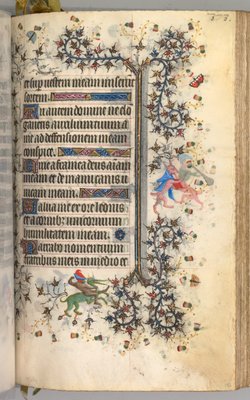 et sup uestem meam miserūt
sortem.
Tu autem domine ne elō
gaueris auxilium tuum a
me ad deffensionem meam
conspice.
Erue a framea deus aīam
meam et de manu canis u
nicam meam.
Salua me ex ore leonis
et a cornibꝫ unicornium
humilitatem meam.
Narrabo nomen tuum
fratribus meis in medio ec